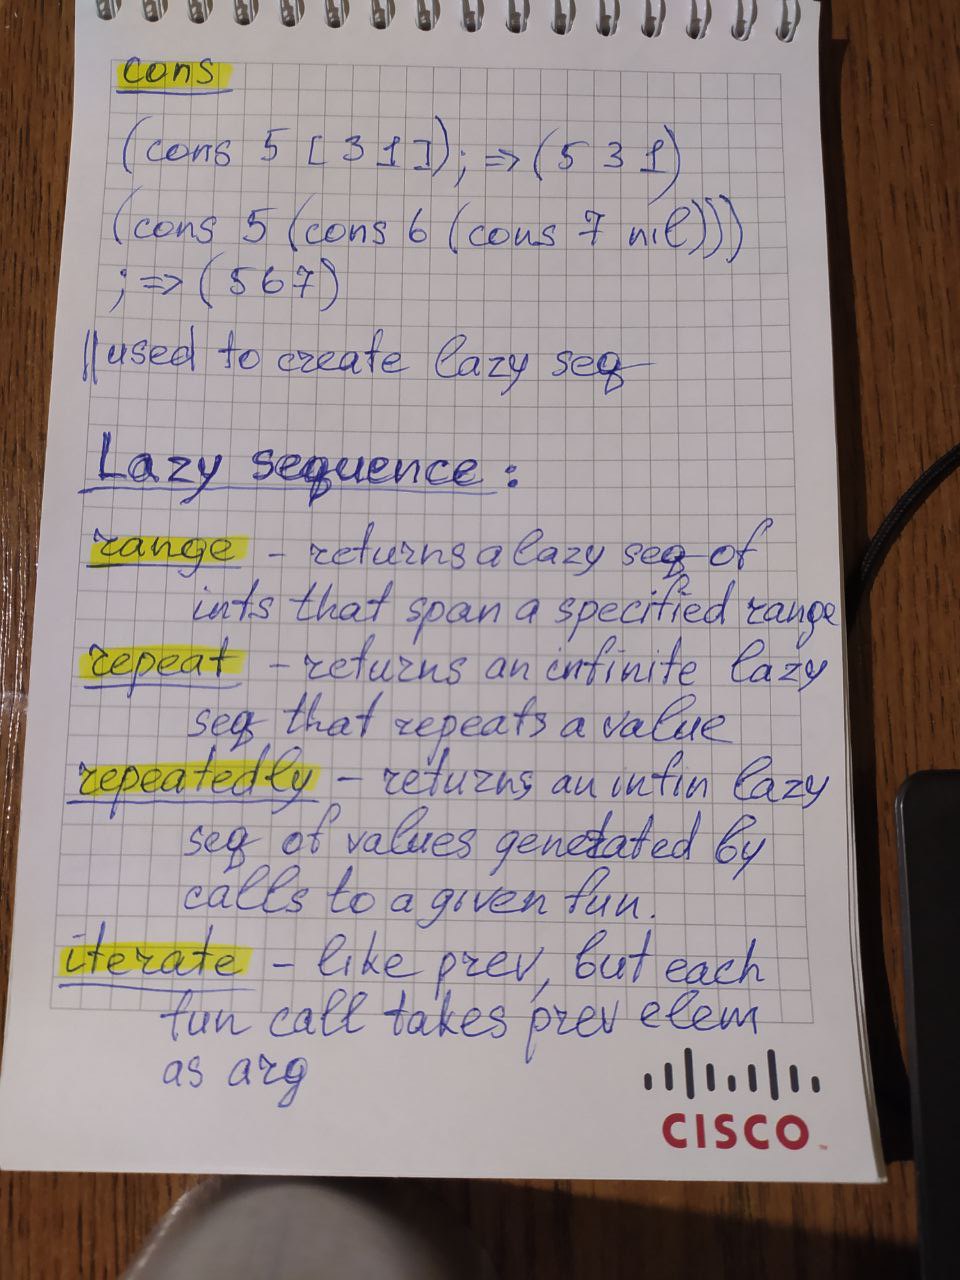 cons
(cons 5 [ 3 1 ]) ; => (5 3 1)
(cons 5 (cons 6 (cons 7 nil)))
; => (5 6 7)
|| used to create lazy seq
Lazy sequence :
range - returns a lazy seq of
ints that span a specified range
repeat - returns an infinite lazy
seq that repeats a value
repeatedly - returns an infin lazy
seq of values generated by
calls to a given fun.
iterate - like prev, but each
fun call takes prev elem
as arg
CISCO